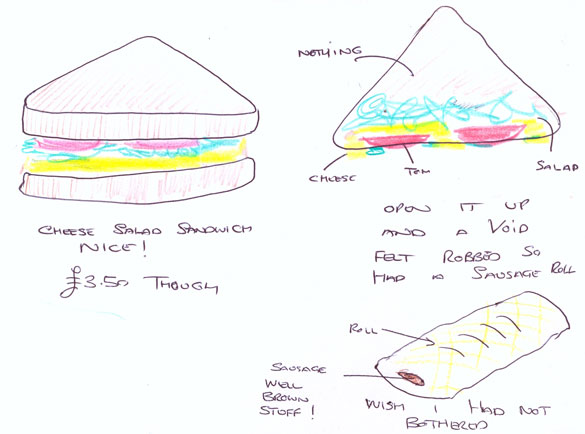 CHEESE SALAD SANDWICH
NICE!
£3.50 THOUGH
NOTHING
CHEESE
TOM
SALAD
OPEN IT UP
AND A VOID
FELT ROBBED SO
HAD A SAUSAGE ROLL
ROLL
SAUSAGE
WELL
BROWN
STUFF!
WISH I HAD NOT
BOTHERED